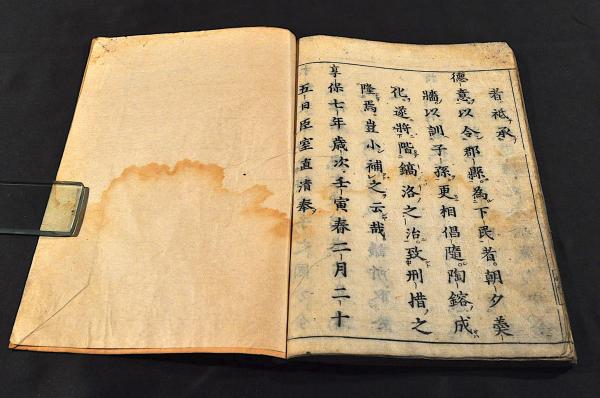 者祗承
德意以令郡縣為下民者朝夕羹
牆以訓子孫更相倡隨陶鎔成
化遂將階鎬洛之治致刑措之
隆焉豈小補之云哉
享保七年歳次壬寅春二月二十
五日臣室直清奉